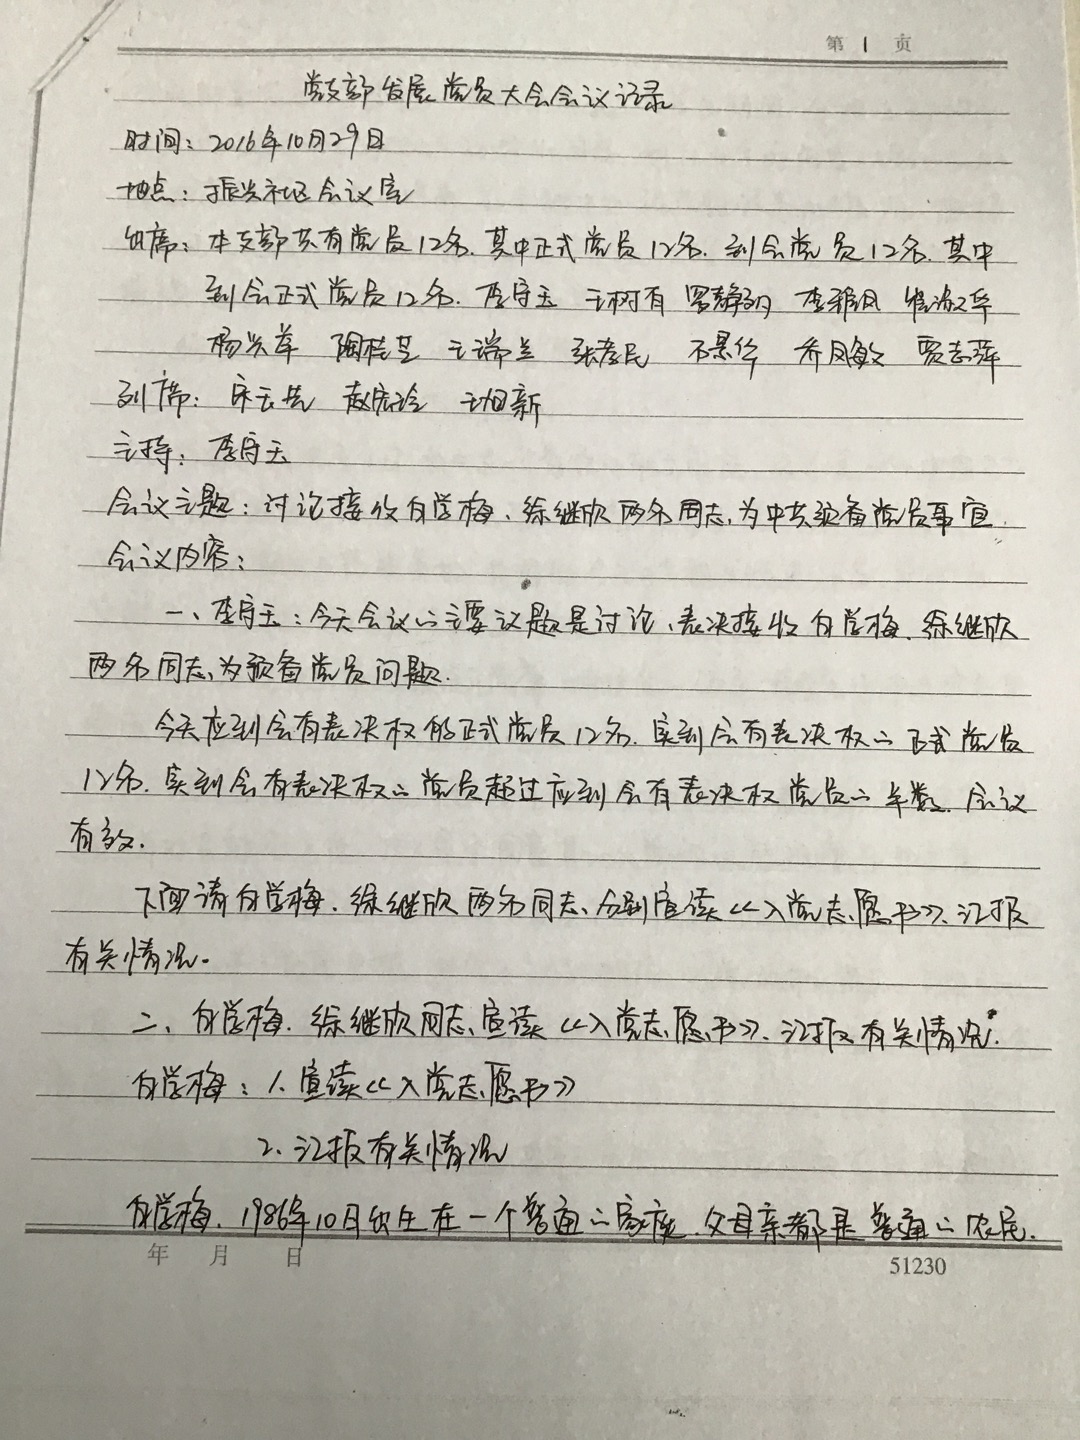 第 1 页
党支部发展党员大会会议记录
时间：2016年10月29日
地点：振兴社区会议室
出席：本支部共有党员12名.其中正式党员12名.到会党员12名.其中
到会正式党员12名.李守玉 王树有 罗静 李雅凤 崔淑华
杨兴革 陶桂芝 王瑞兰 张彦民 景华 乔凤敏 贾志萍
列席：宋云 赵宏玲 王旭新
主持：李守玉
会议主题：讨论接收白学梅、徐继欣两名同志为中共预备党员事宜.
会议内容：
一、李守玉：今天会议的主要议题是讨论、表决接收白学梅、徐继欣
两名同志为预备党员问题.
今天应到会有表决权的正式党员12名.实到会有表决权的正式党员
12名.实到会有表决权的党员超过应到会有表决权党员的半数.会议
有效.
下面请白学梅.徐继欣两名同志分别宣读《入党志愿书》、汇报
有关情况。
二、白学梅.徐继欣同志宣读《入党志愿书》、汇报有关情况.
白学梅：1.宣读《入党志愿书》
2.汇报有关情况
白学梅.1986年10月出生在一个普通的家庭.父母亲都是普通的农民.
年 月 日
51230